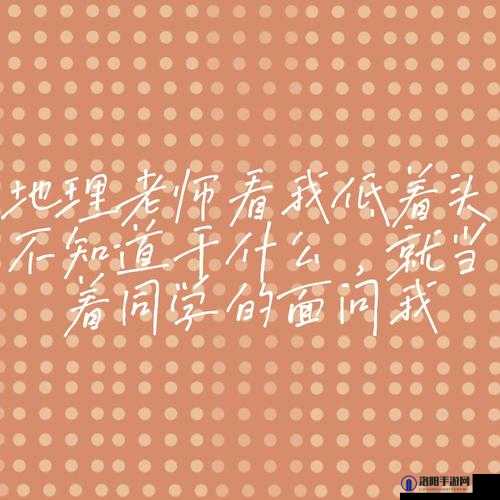 地理老师看我低着头
不知道干什么，就当
着同学的面问我
洛阳手游网